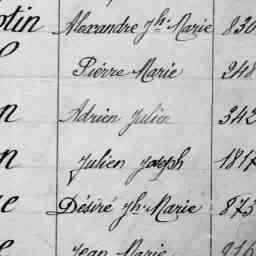 otin Alexandre Jh. Marie 830
Pierre Marie 248
n Adrien Julien 342
n Julien Joseph 1817
e Désiré Jh. Marie 875
e Jean Marie